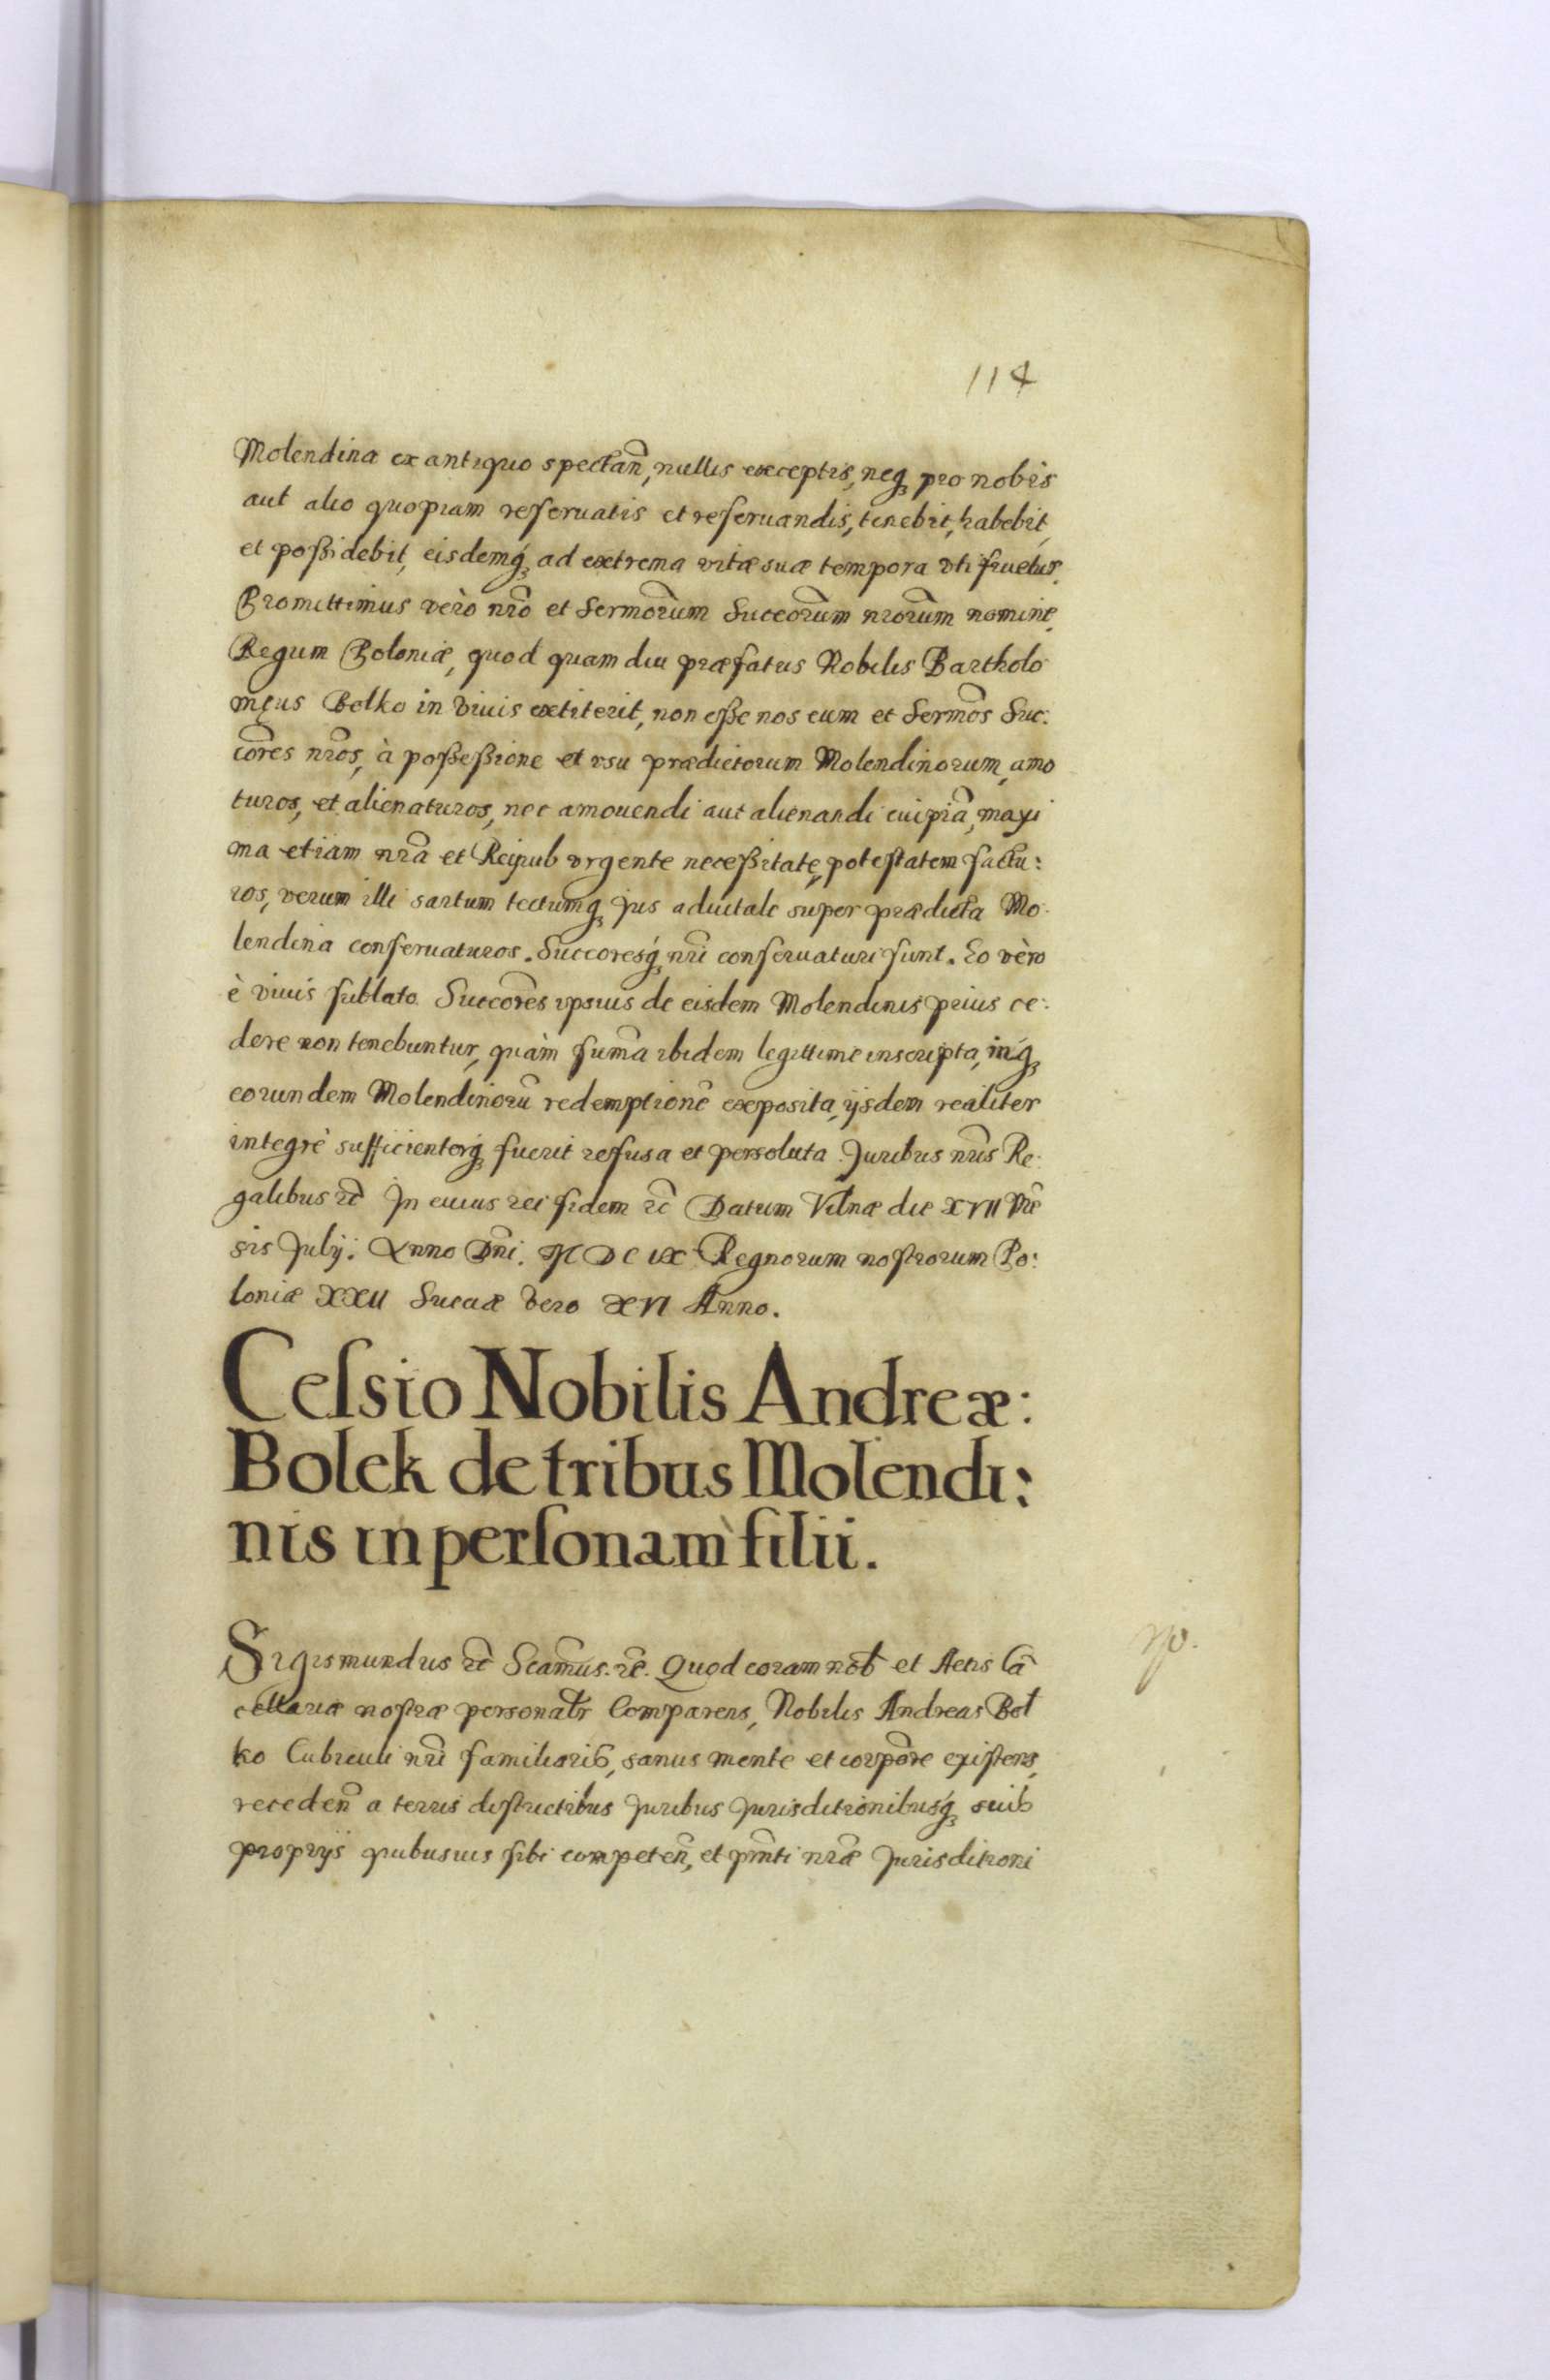 114
Molendina ex antiquo spectań, nullis exceptis, neqꝫ pro nobis
aut alio quopiam reseruatis et reseruandis, tenebit, habebit,
et poßidebit, eisdemqꝫ ad extrema vitæ suæ tempora vti fruetur.
Promittimus vèro nr̃o et Sermorũm Succorũm nrorũm nomine,
Regum Poloniæ, quod quam diu præfatus Nobilis Bartholo
męus Bolko in viuis extiterit, non eße nos eum et Sermõs Suc:
cõres nrõs, à poßeßione et vsu prædictorum Molendinorum, amo
turos, et alienaturos, nec amouendi aut alienandi cuipiã, maxi
ma etiam nrã et Reipub vrgente neceßitate, potestatem factu:
ros, verum illi sartum tectumqꝫ Jus aduitale super prædicta Mo
lendina conseruaturos. Succoresqꝫ nr̃i conseruaturi sunt. Eo vèro
è viuis sublato Succorẽs ipsius de eisdem Molendinis prius ce:
dere non tenebuntur, quàm sum̃a ibidem legittime inscripta, inqꝫ
eorundem Molendinorũ redemptionẽ exposita, ijsdem realiter
integrè sufficienterqꝫ fuerit refusa et persoluta. Juribus nrĩs Re:
galibus rc̃ Jn cuius rei fidem rc̃ Datum Vilnæ die XVII Mẽ
sis Julij. Anno Dñi. M D C IX Regnorum nostrorum Po:
loniæ XXII Sueciæ vero XVI Anno.
Ceſsio Nobilis Andreæ:
Bolek de tribus Molendi:
nis in perſonam filii.
Sigismundus rc̃ Scamũs. rc̃. Quod coram nob̃ et Actis Cã
cellariæ nostræ personalr̃ Comparens, Nobilis Andreas Bol
ko Cubiculi nr̃i familiaris, sanus mente et corpõre existens,
recedeñ a terris districtibus Juribus Jurisditionibusqꝫ suis
proprijs quibusuis sibi competeñ, et pñti nræ̃ Jurisditioni